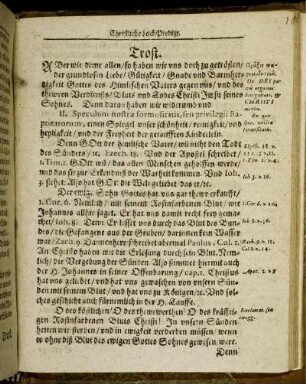 Christliche Leich-Predigt.
Trost.
Aber wie deme allen / so haben wir uns doch zu getrösten /
der grundlosen Liebe / Gütigkeit / Gnade und Barmhertz-
igkeit Gottes des Himlischen Vaters gegen uns / und des
thewren Verdiensts / Tods und Todes Christi Jesu seines
Sohnes. Denn daran haben wir wiederumb und
II. Speculum nostræ formositatis, seu privilegii Ba-
ptizatorum, einen Spiegel unser schönheit / reinigkeit / und
heyligkeit / und der Freyheit der getaufften Kinderlein.
Denn GOtt der hemlische Vater / wil nicht den Todt
des Sünders / etc. Ezech. 18. Und der Apostel schreibet /
1. Tim. 2. GOtt wil / das allen Menschen geholffen werde /
und das sie zur Erkendnuß der Warheit kommen. Und Ioh.
3. sehet: Also hat GOtt die Welt geliebet / das er / etc.
Der ewige Sohn Gottes hat uns gar thewr erkaufft /
1. Cor. 6. Nemlich / mit seinem Rosinfarbenen Blut / wie
Johannes allhie saget. Er hat uns damit recht frey gemacht /
Ioh. 8. Denn Er lesset uns durch das Blut des Bun-
des / die Gefangene aus der Gruben / darinnen kein Wasser
war / Zach. 9. Dannenhero schreibet abermal Paulus / Col. 1.
An Christo haben wir die Erlösung durch sein Blut, Nem-
lich / die Vergebung der Sünden. Also stimmet hiermit auch
der H. Johannes in seiner Offenbarung / cap. 1. Christus
hat uns geliebet / und hat uns gewaschen von unsern Sün-
den mit seinem Blut / und hat uns zu Königen / etc. Und sol-
ches geschicht auch fürnemlich in der H. Tauffe.
O des köstlichen / O des thewrwerthen! O des kräffti-
gen Rosinfarbenen Bluts Christi! In unsern Sünden
hetten wir sterben / und in ewigkeit verderben müssen / wenn
es ohne diß Blut des ewigen Gottes Sohnes gewesen were.
Denn
Ezech. 18. v.
1. Tim. 2. v. 4.
Ioh. 3. v. 16.
Ioh. 8. v.
Zach. 9. v. 11.
Col. 1. v. 14.
Apoc. 1. v. 5